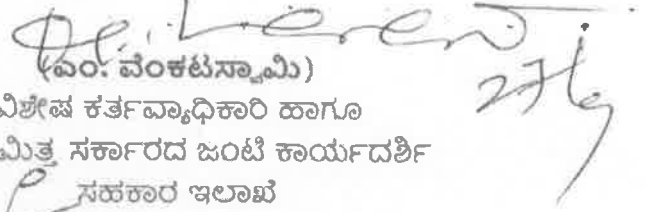 (ಎಂ. ವೆಂಕಟಸ್ವಾಮಿ)
ವಿಶೇಷ ಕರ್ತವ್ಯಾಧಿಕಾರಿ ಹಾಗೂ
ಮಿತ್ತ ಸರ್ಕಾರದ ಜಂಟಿ ಕಾರ್ಯದರ್ಶಿ
ಸಹಕಾರ ಇಲಾಖೆ